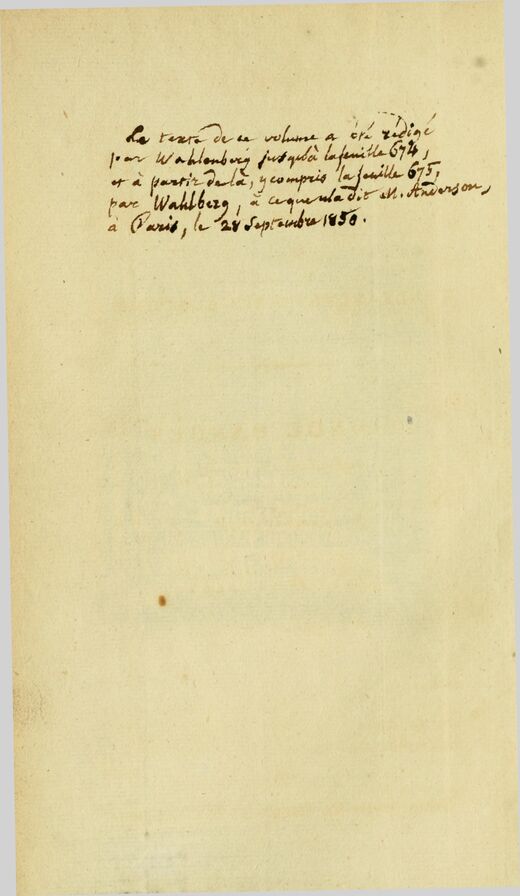 Le texte de ce volume a été rédigé
par Wahlenberg jusqu'à la feuille 674,
et à partir de là, y compris la feuille 675,
par Wahlberg, à ce que m'a dit M. Anderson,
à Paris, le 28 Septembre 1850.